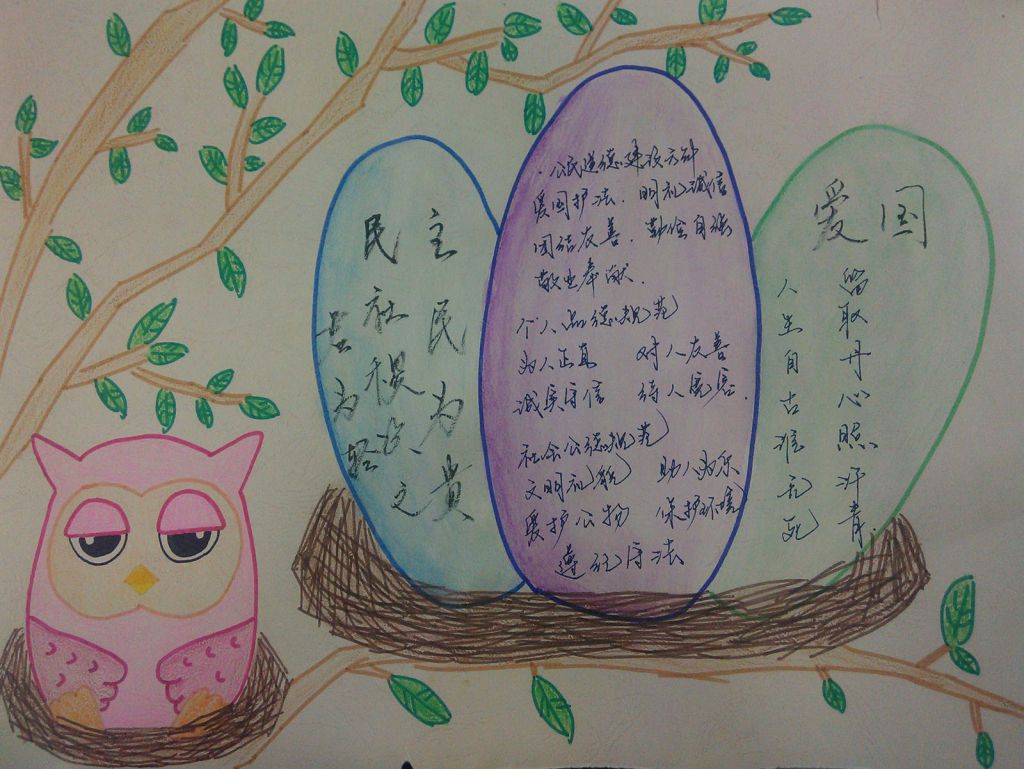 民主
民为贵
社稷次之
君为轻
·公民道德建设方针
爱国护法.明礼诚信
团结友善.勤俭自强
敬业奉献.
个人品德规范
为人正直 对人友善
诚实守信 待人宽容.
社会公德规范
文明礼貌 助人为乐
爱护公物 保护环境
遵纪守法
爱国
人生自古谁无死
留取丹心照汗青.